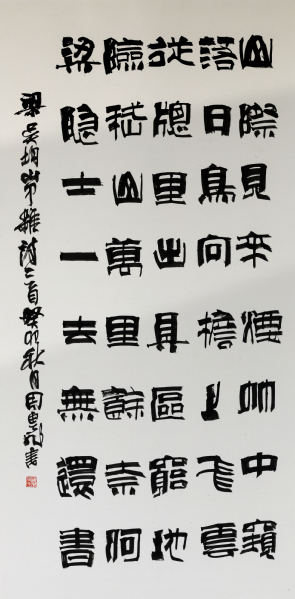 山際見來煙竹中窺
落日鳥向檐上飛雲
從牕里出具區窮地
險嵇山萬里餘奈何
梁隱士一去無還書
梁吳均山中雜詩三首癸卯秋月周書